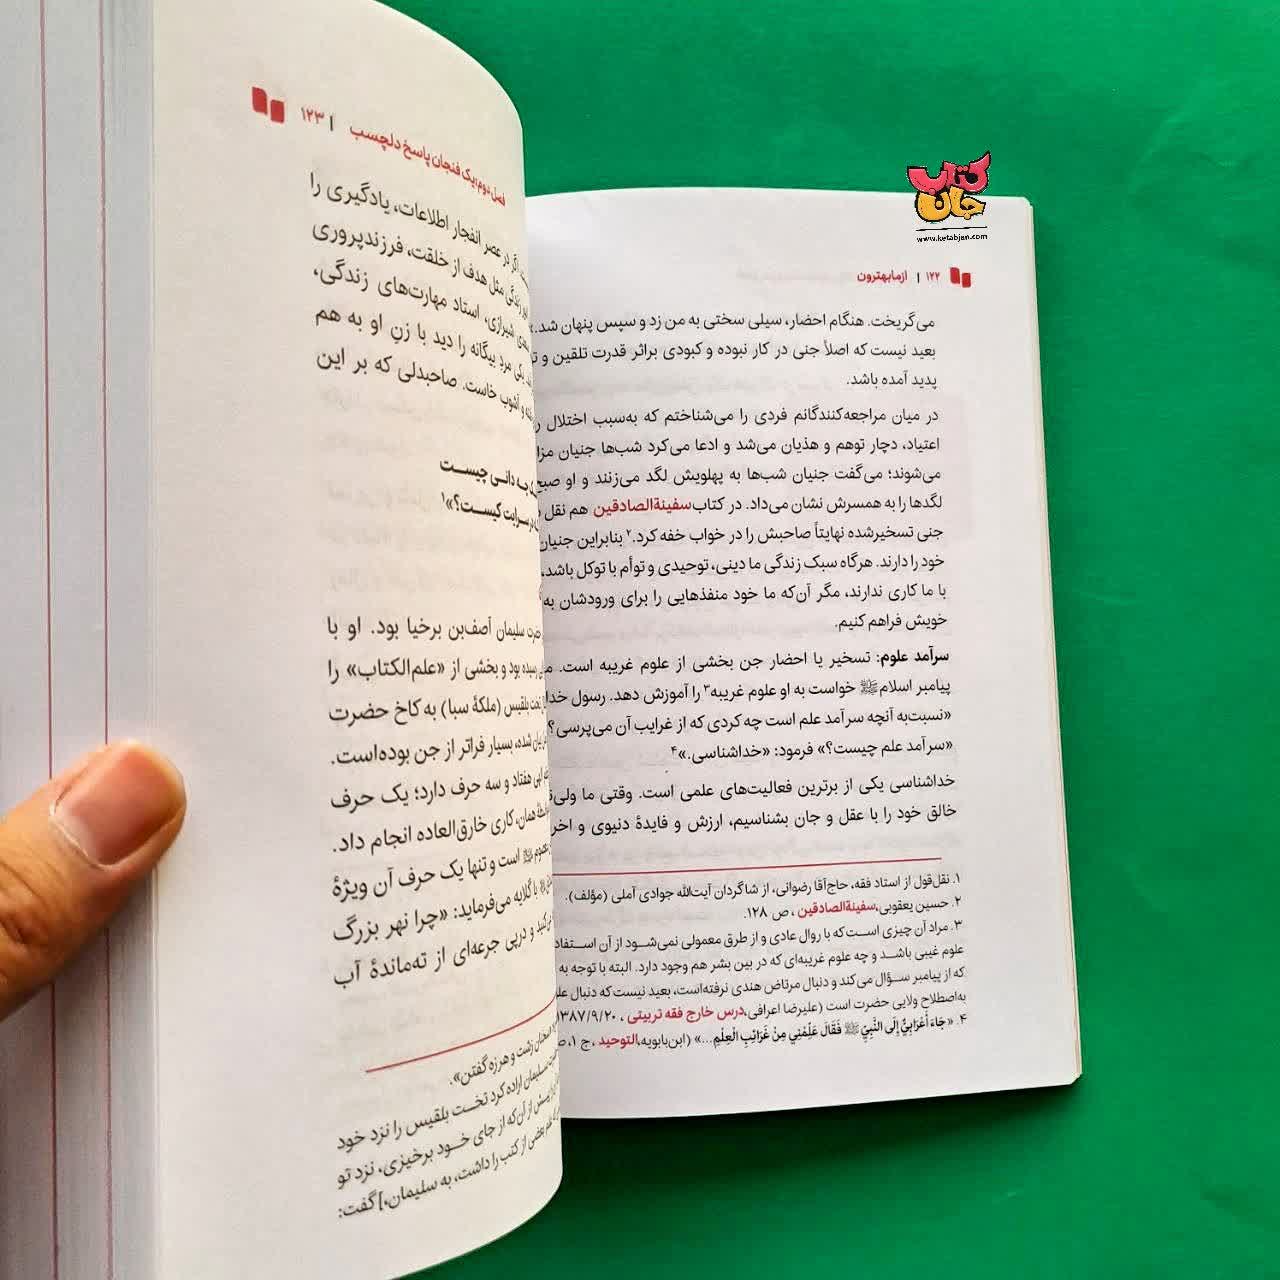 کتاب جان
www.ketabjan.com
۱۲۲ | ازمابهترون
می‌گریخت. هنگام احضار، سیلی سختی به من زد و سپس پنهان شد.
بعید نیست که اصلاً جنی در کار نبوده و کبودی براثر قدرت تلقین و
پدید آمده باشد.
در میان مراجعه‌کنندگانم فردی را می‌شناختم که به‌سبب اختلال
اعتیاد، دچار توهم و هذیان می‌شد و ادعا می‌کرد شب‌ها جنیان
می‌شوند؛ می‌گفت جنیان شب‌ها به پهلویش لگد می‌زنند و او
لگدها را به همسرش نشان می‌داد. در کتاب سفینةالصادقین هم نقل
جنی تسخیرشده نهایتاً صاحبش را در خواب خفه کرد.۲ بنابراین جنیان
خود را دارند. هرگاه سبک زندگی ما دینی، توحیدی و توأم با توکل باشد،
با ما کاری ندارند، مگر آن‌که ما خود منفذهایی را برای ورودشان به
خویش فراهم کنیم.
سرآمد علوم: تسخیر یا احضار جن بخشی از علوم غریبه است.
پیامبر اسلامﷺ خواست به او علوم غریبه۳ را آموزش دهد. رسول خدا
«نسبت‌به آنچه سرآمد علم است چه کردی که از غرایب آن می‌پرسی؟
«سرآمد علم چیست؟» فرمود: «خداشناسی.»۴
خداشناسی یکی از برترین فعالیت‌های علمی است. وقتی ما
خالق خود را با عقل و جان بشناسیم، ارزش و فایدهٔ دنیوی و
۱. نقل‌قول از استاد فقه، حاج‌آقا رضوانی، از شاگردان آیت‌الله جوادی آملی (مؤلف).
۲. حسین یعقوبی، سفینةالصادقین، ص ۱۲۸.
۳. مراد آن چیزی است که با روال عادی و از طرق معمولی نمی‌شود از آن
علوم غیبی باشد و چه علوم غریبه‌ای که در بین بشر هم وجود دارد. البته با توجه به
که از پیامبر سؤال می‌کند و دنبال مرتاض هندی نرفته‌است، بعید نیست که دنبال
به‌اصطلاح ولایی حضرت است (علیرضا اعرافی، درس خارج فقه تربیتی، ۱۳۸۷/۹/۲۰
۴. «جَاءَ أَعْرَابِيٌّ إِلَى النَّبِيِّ ﷺ فَقَالَ عَلِّمْنِي مِنْ غَرَائِبِ الْعِلْمِ...» (ابن‌بابویه، التوحید، ج ۱،
فصل دوم: یک فنجان پاسخ دلچسب | ۱۲۳
اگر در عصر انفجار اطلاعات، یادگیری را
زندگی مثل هدف از خلقت، فرزندپروری
شیرازی، استاد مهارت‌های زندگی،
یکی مردِ بیگانه را دید با زنِ او به هم
و آشوب خاست. صاحبدلی که بر این
چه دانی چیست
سرایت کیست؟»۱
حضرت سلیمان آصف‌بن برخیا بود. او با
رسیده بود و بخشی از «علم‌الکتاب» را
تخت بلقیس (ملکهٔ سبا) به کاخ حضرت
بیان شده، بسیار فراتر از جن بوده‌است.
الهی هفتاد و سه حرف دارد؛ یک حرف
همان، کاری خارق‌العاده انجام داد.
است و تنها یک حرف آن ویژهٔ
با گلایه می‌فرماید: «چرا نهر بزرگ
و درپی جرعه‌ای از ته‌ماندهٔ آب
سخنان زشت و هرزه گفتن».
سلیمان اراده کرد تخت بلقیس را نزد خود
پیش از آن‌که از جای خود برخیزی، نزد تو
بعضی از کتب را داشت، به سلیمان،] گفت: